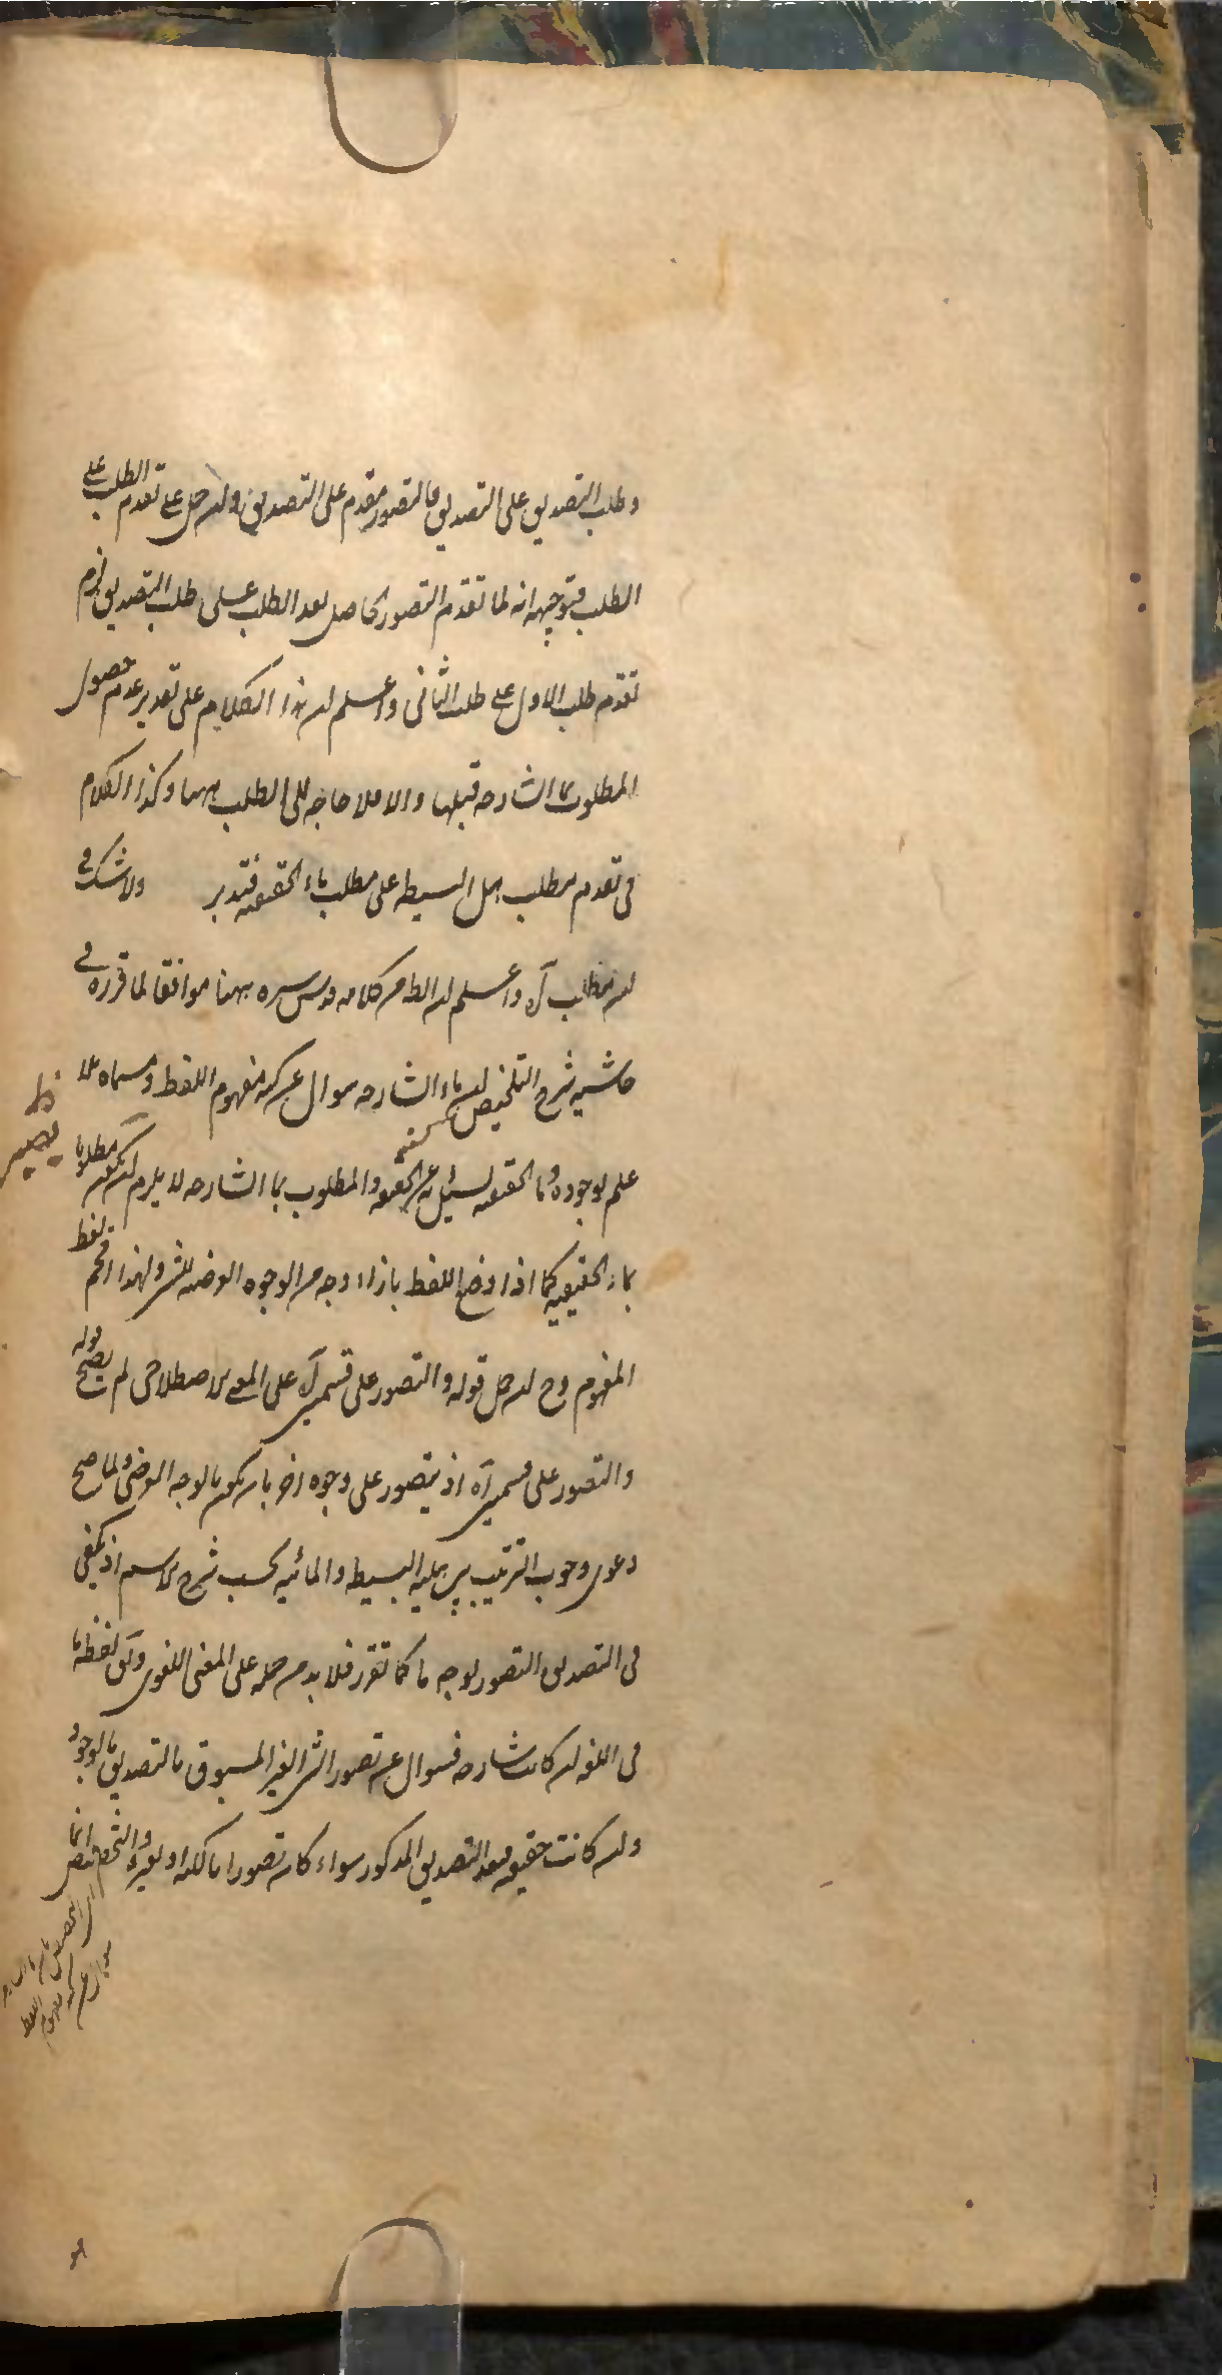 وطلب التصديق على التصديق فالتصور مقدم على التصديق وان حمل على تقدم الطلب على
الطلب فتوجيهه انه لما تقدم التصور الحاصل بعد الطلب على طلب التصديق لزم
تقدم طلب الاول على طلب الثانى واعلم ان هذا الكلام على تقدير عدم حصول
المطلوب بما الشارحه قبلها والا فلا حاجه الى الطلب بهما وكذا الكلام
فى تقدم مطلب هل البسيطه على مطلب ماء الحقيقيه فتدبر ولا شك فى
ان مطلب آه واعلم ان الظ من كلامه قدس سره ههنا موافقا لما قرره فى
حاشيه شرح التلخيص ان ماء الشارحه سؤال عن كنه مفهوم اللفظ ومسماه بلا
علم بوجوده وما الحقيقيه يسئل به عن الحقيقه والمطلوب بما الشارحه لا يلزم ان يكون مطلوبا
بماء الحقيقيه كما اذا وضع اللفظ بازاء وجه من الوجوه العرضيه للشئ ولهذا اقحم لفظ
المفهوم وح ان حمل قوله والتصور على قسمين آه على المعنى الاصطلاحى لم يصح قوله
والتصور على قسمين آه اذ يتصور على وجوه اخر بان يكون بالوجه العرضى ولما صح
دعوى وجوب الترتيب بين هليه البسيطه والمائيه بحسب شرح الاسم اذ يكفى
فى التصديق التصور بوجه ما كما تقرر فلا بد من حمله على المعنى اللغوى ولكن لفظه ما
فى اللغه ان كانت شارحه فسؤال عن تصور الشئ الغير المسبوق بالتصديق بالوجود
وان كانت حقيقيه فبعد التصديق المذكور سواء كان تصورا بالكنه او بغيره والشخص انما